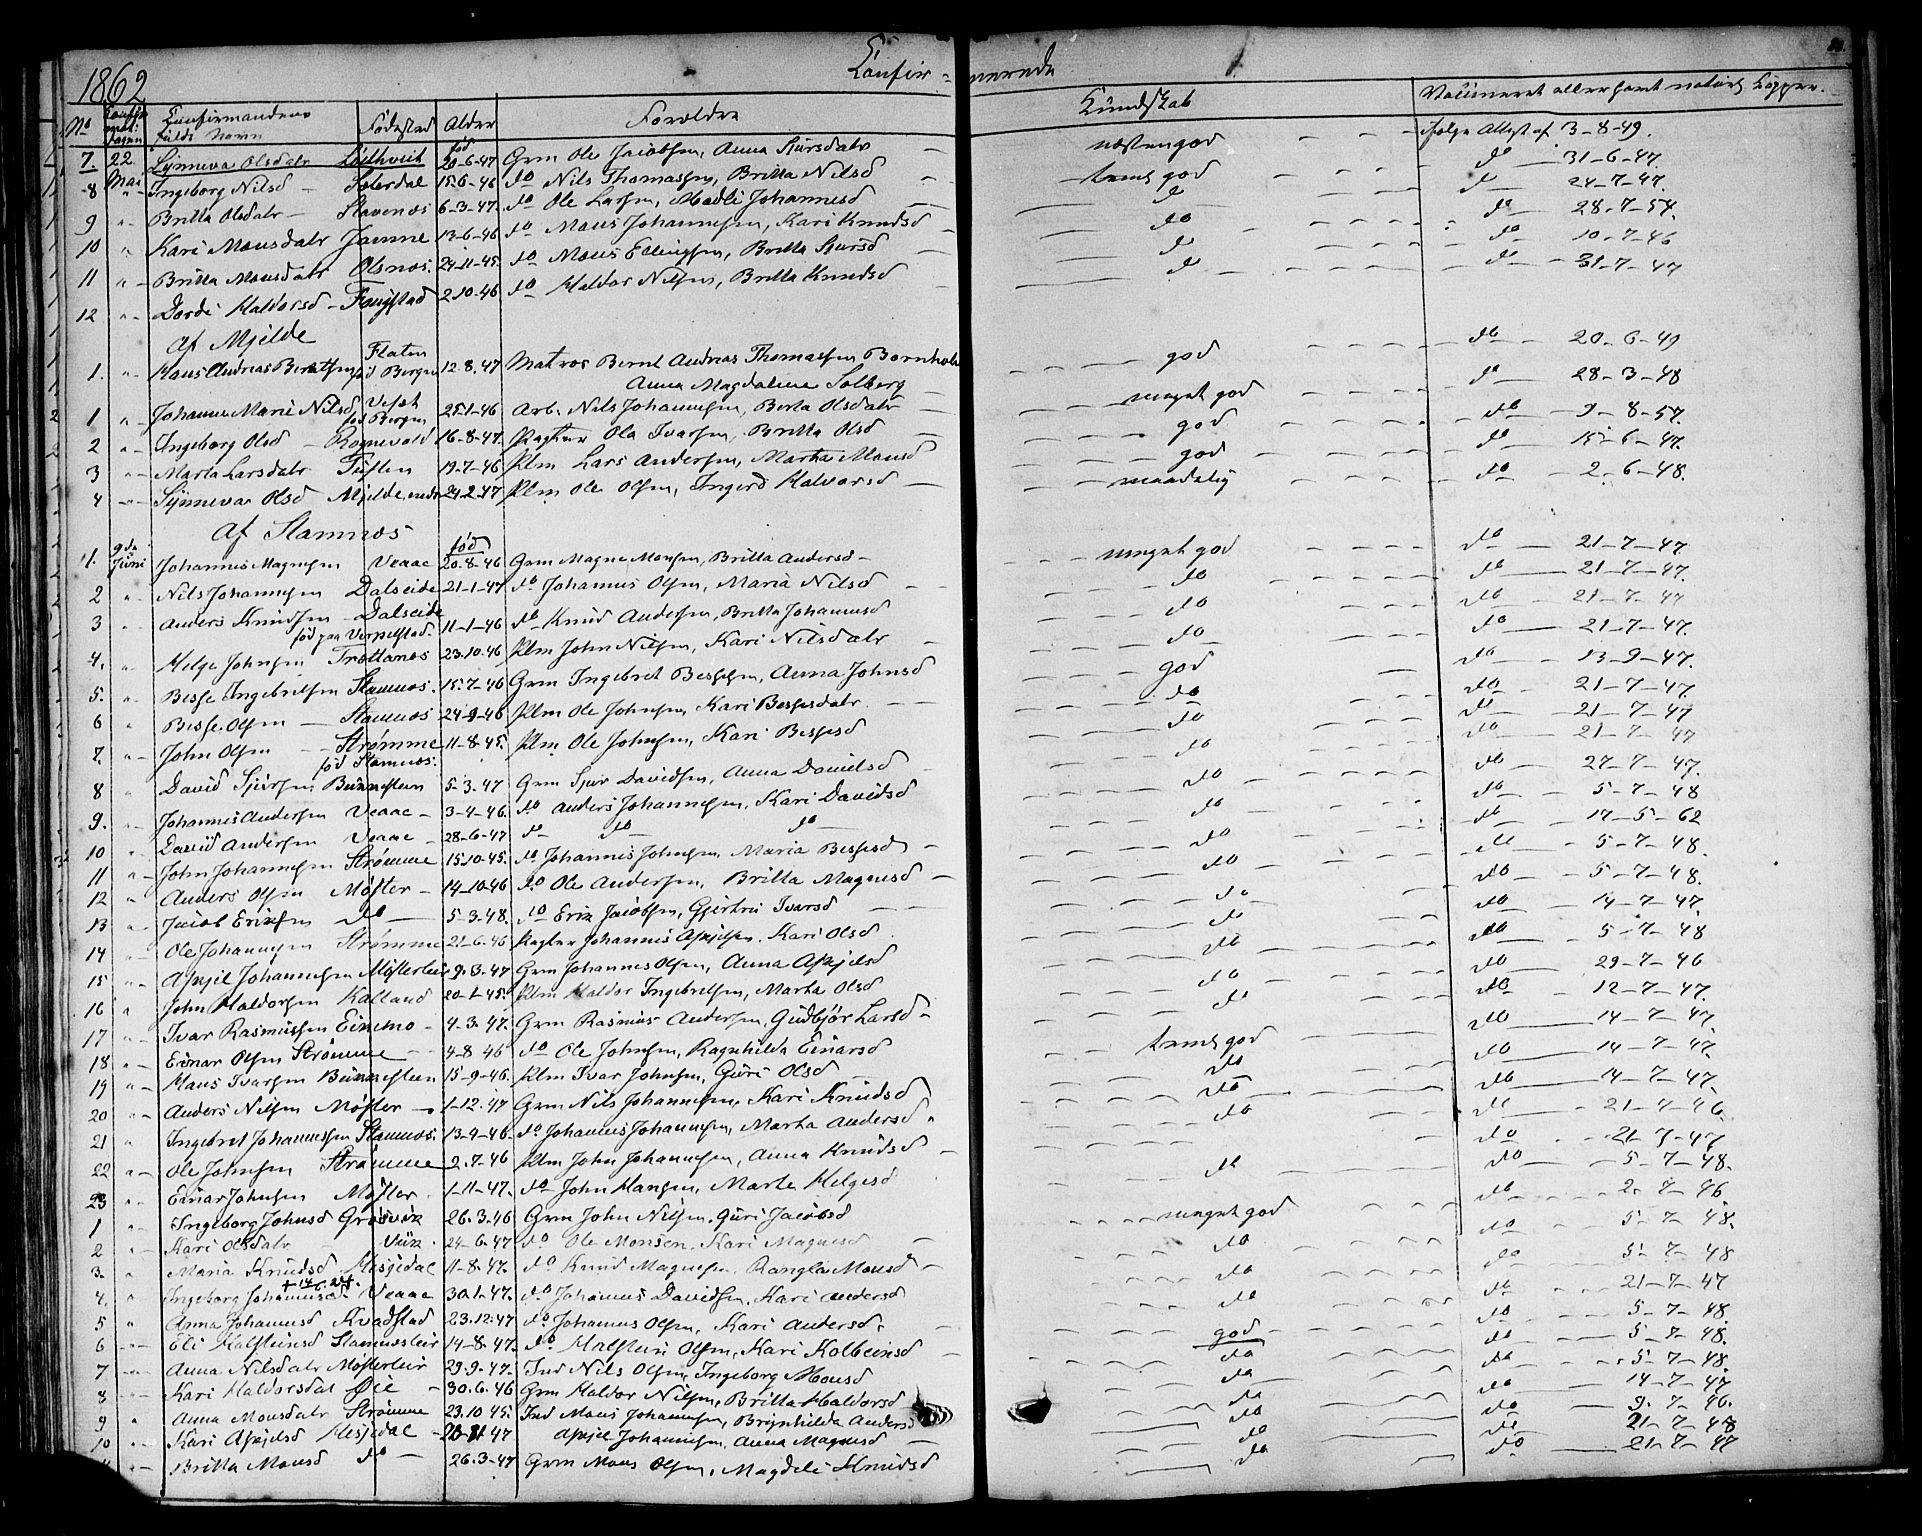 1862 Confir= merede
No Confirmationsdagen Confirmandens fulde Navn Fødested Alder Forældre Kundskab Vaccineret eller havt naturl. Kopper.
7. 22 Mai Synneva Olsdatr født 20-6-47 Grm Ole Jacobsen, Anna Sjursdatr næstengod ifølge Attest af 3-8-49.
8 " Ingeborg Nilsd Soterdal 15-6-46 do Nils Thomassen, Britta Nilsd temel god do 31-6-47.
9 " Britta Olsdatr Stavenæs 6-3-47. do Ole Larsen, Madli Johannesd do do 24-7-47.
10 " Kari Monsdatr Jamne 13-6-46 do Mons Johannessen, Kari Knudsd do do 28-7-57.
11 " Britta Monsdatr Olsnæs. 24-11-45. do Mons Ellingsen, Britta Sjursd do do 10-7-46
12 " Dordi Haldorsd Fougstad 2-10-46 do Haldor Nilsen, Britta Knudsd do do 31-7-47
af Mjelde
1. " Hans Andreas Berntsen Flaten fød Bergen 12-8-47 Matros Bernt Andreas Thomassen Bornholm god do 20-6-49
Anna Magdalene Solberg
1 " Johanna Marie Nilsd Vesæt fød Bergen 25-1-46 Arb. Nils Johannessen, Berta Olsdatr meget god do 28-3-48
2 " Ingeborg Olsd Rognevold 16-8-47. Pagter Ola Ivarsen, Britta Olsd god do 9-8-57.
3 " Marta Larsdatr Tuften 19-7-46 Plm Lars Andersen, Martha Monsd god do 15-6-47.
4 " Synneva Olsd Mjelde nedr 24-2-47 Plm Ole Olsen, Ingerd Halvorsd maadelig do 2-6-48.
Af Stamnæs
1. 9de Juni Johannes Magnesen Veaae født 20-8-46 Grm Magne Monsen, Britta Andersd meget god do 21-7-47.
2 " Nils Johannesen Dalseide 21-1-47 do Johannes Olsen, Maria Nilsd do do 21-7-47.
3 " Anders Knudsen Dalseide fød paa Verpelstad 11-1-46 do Knud Andersen, Britta Johannesd do do 21-7-47
4. " Helge Johnsen Trottanes 23.10.46 Plm John Nilsen, Kari Nilsdatr do do 21-7-47.
5. " Besse Ingebretsen Stamnæs. 15-7-46 Grm Ingebret Bessesen, Anna Johnsd god do 13-9-47.
6 " Besse Olsen Stamnæs 24-9-46 Plm Ole Johnsen, Kari Bessesdatr do do 21-7-47.
7. " John Olsen Strømme fød Stamnæs. 11-8-45. Plm Ole Johnsen, Kari Bessesd do do 21-7-47
8 " David Sjursen 5-3-47 Grm Sjur Davidsen, Anna Danielsd do do 21-7-47
9. " Johannes Andersen Veaae 3-4-46. do Anders Johannesen, Kari Davidsd do do 27-7-47.
10 " David Andersen Veaae 28-6-47 do do do do do 5-7-48
11 " John Johannesen Strømme 15-10-45. do Johannes Johnsen, Maria Bessesd do do 17-5-62
12 " Anders Olsen Møster 14-10-46 do Ole Andersen, Britta Magnesd do do 5-7-48.
13 " Jacob Eriksen do 5-3-48. do Erik Jacobsen, Gjertru Ivarsd do do 5-7-48.
14 " Ole Johannesen Strømme 21-6-46 Pagter Johannes Askjelsen. Kari Olsd do do 14-7-47.
15 " Askjel Johannesen Møsterleir 9-3-47 Grm Johannes Olsen, Anna Askjelsd do do 5-7-48
16 " John Haldorsen Kalland 20-1-45. Plm Haldor Ingebretsen, Marta Olsd do do 29-7-46
17 " Ivar Rasmussen Einemo 4-3-47. Grm Rasmus Andersen, Gudbjør Larsd do do 12-7-47.
18 " Einar Olsen Strømme 4-8-46 do Ole Johnsen, Ragnhilda Einarsd temel god do 14-7-47.
19 " Hans Ivarsen 15-9-46. Plm Ivar Johnsen, Guri Olsd do do 14-7-47.
20 " Anders Nilsen Møster 1-12-47 Grm Nils Johannesen, Kari Knudsd do do 14-7-47.
21 " Ingebret Johannessen Stamnæs. 13-4-46. do Johannes Johannesen, Martha Andersd do do 21-7-46
22 " Ole Johnsen Strømme 2-7-46 Plm John Johannesen, Anna Knudsd do 21-7-47
23 " Einar Johnsen Møster 1-11-47. do John Hansen, Marta Helgesd do do 5-7-48.
1 " Ingeborg Johnsd Grøsvik 26-3-46 Grm John Nilsen, Guri Jacobsd meget god do 2-7-46
2 " Kari Olsdatr Viik 24-6-47 do Ole Monsen, Kari Magnesd do do 5-7-48.
3. " Maria Knudsd Hesjedal 11-8-47. do Knud Magnesen, Rangla Monsd do do 5-7-48
4. " Ingeborg Johannesd Veaae 30-1-47. do Johannes Davidsen, Kari Andersd do do 21-7-47
5 " Anna Johannesd Kvadstad 23-12-47 do Johannes Olsen, Kari Andersd. god do 5-7-48.
6 " Eli Halsteinsd Stamnesleir 14-8-47. do Halstein Olsen, Kari Kolbeinsd do do 5-7-48.
7 " Anna Nilsdatr Møsterleir 29-9-47. Ind Nils Olsen, Ingeborg Monsd do do 5-7-48.
8 " Kari Haldorsdat Øie 30-6-46 Grm Haldor Nilsen, Britta Haldorsd do do 14-7-47
9 " Anna Monsdatr Strømme 23-10-45. Ind Mons Johannesen, Brynhilda Andersd do do 9-7-46.
10 " Kari Askjelsd Hesjedal 47 Askjel Johannesen, Anna Magnesd do do 21-7-48
" Britta Monsd do 26-3-47 Grm Mons Olsen, Magdeli Knudsd do do 21-7-47